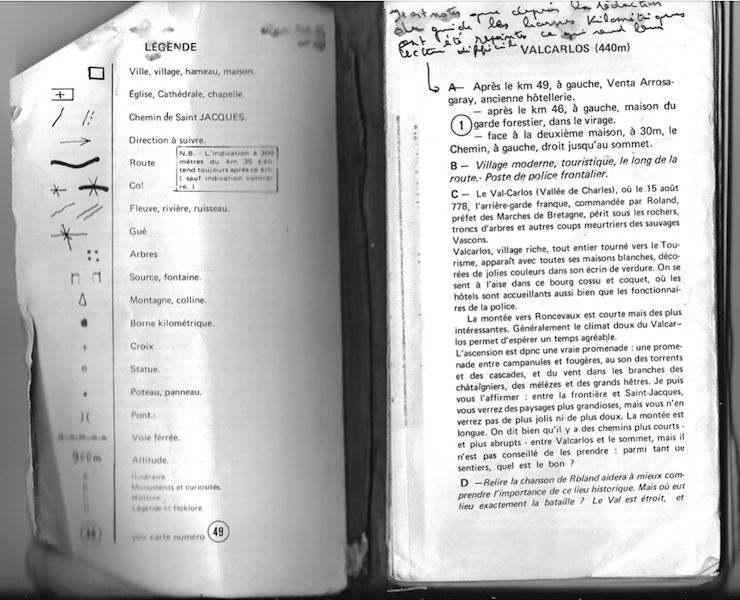 LÉGENDE
Ville, village, hameau, maison.
Église, Cathédrale, chapelle.
Chemin de Saint JACQUES.
Direction à suivre.
Route
N.B. - L'indication à 300
mètres du km 35 s'en
tend toujours après ce km
( sauf indication contrai
re. )
Col
Fleuve, rivière, ruisseau.
Gué
Arbres
Source, fontaine.
Montagne, colline.
Borne kilométrique.
Croix
Statue.
Poteau, panneau.
Pont.
Voie férrée.
960m Altitude.
Itinéraire
Monuments et curiosités.
Histoire.
Légende et floklore.
49 voir carte numéro 49
que depuis la rédaction
du guide les bornes kilométriques
ont été repeintes ce qui rend leur
lecture difficile
VALCARLOS (440m)
A— Après le km 49, à gauche, Venta Arrosa-
garay, ancienne hôtellerie.
— après le km 46, à gauche, maison du
1 garde forestier, dans le virage.
— face à la deuxième maison, à 30m, le
Chemin, à gauche, droit jusqu'au sommet.
B — Village moderne, touristique, le long de la
route.- Poste de police frontalier.
C — Le Val-Carlos (Vallée de Charles), où le 15 août
778, l'arrière-garde franque, commandée par Roland,
préfet des Marches de Bretagne, périt sous les rochers,
troncs d'arbres et autres coups meurtriers des sauvages
Vascons.
Valcarlos, village riche, tout entier tourné vers le Tou-
risme, apparaît avec toutes ses maisons blanches, déco-
rées de jolies couleurs dans son écrin de verdure. On se
sent à l'aise dans ce bourg cossu et coquet, où les
hôtels sont accueillants aussi bien que les fonctionnai-
res de la police.
La montée vers Roncevaux est courte mais des plus
intéressantes. Généralement le climat doux du Valcar-
los permet d'espérer un temps agréable.
L'ascension est dpnc une vraie promenade : une prome-
nade entre campanules et fougères, au son des torrents
et des cascades, et du vent dans les branches des
châtaîgniers, des mélèzes et des grands hêtres. Je puis
vous l'affirmer : entre la frontière et Saint-Jacques,
vous verrez des paysages plus grandioses, mais vous n'en
verrez pas de plus jolis ni de plus doux. La montée est
longue. On dit bien qu'il y a des chemins plus courts -
et plus abrupts - entre Valcarlos et le sommet, mais il
n'est pas conseillé de les prendre : parmi tant de
sentiers, quel est le bon ?
D —Relire la chanson de Ròland aidera à mieux com-
prendre l'importance de ce lieu historique. Mais où eut
lieu exactement la bataille ? Le Val est étroit, et